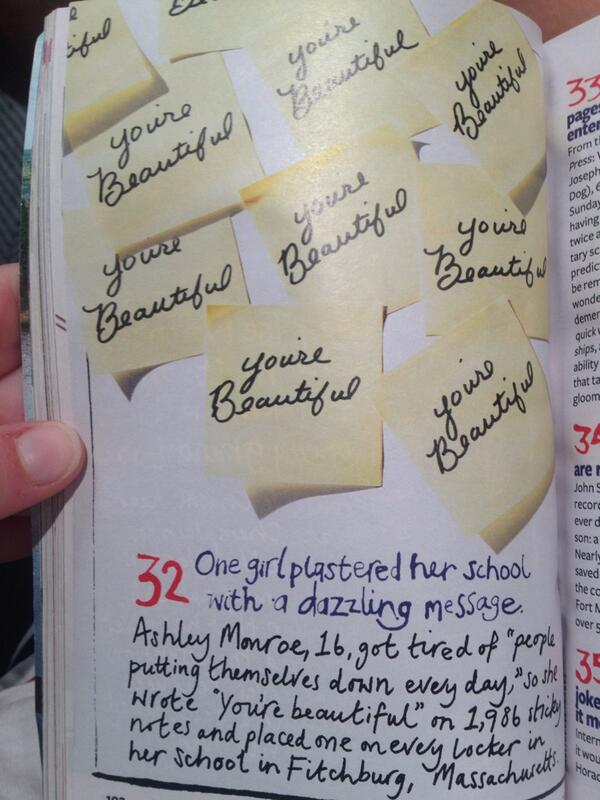 iful
you're
Beautiful
you're
Beautiful
you're
Beautiful
you're
Beautiful
you're
Beautiful
you're
Beautiful
you're
Beautiful
you're
Beautiful
32 One girl plastered her school
with a dazzling message.
Ashley Monroe, 16, got tired of "people
putting themselves down every day," so she
wrote "You're beautiful" on 1,986 sticky
notes and placed one on every locker in
her school in Fitchburg, Massachusetts.
33
pages
enter
From th
Press: V
Joseph
Dog), 6
Sunday
having
twice a
tary sc
predic
be rem
wonde
demen
quick w
ships, a
ability
that ta
gloom
34
are r
John S
record
ever d
son: a
Nearly
saved
the co
Fort M
over 5
35
joke
it m
Intern
it wou
Horac